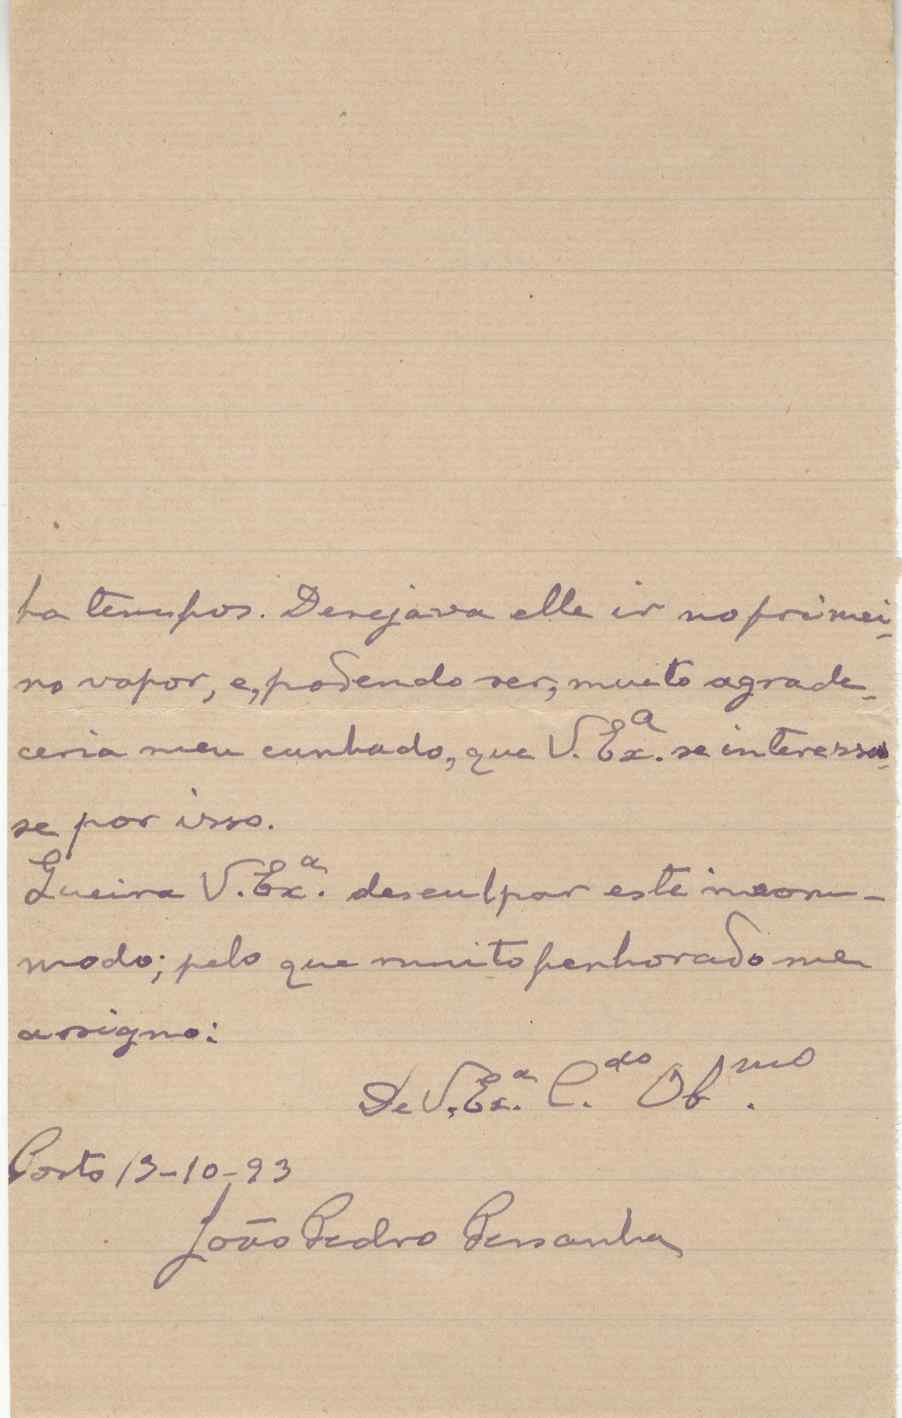 ha tempos. Desejava elle ir no primei-
ro vapor, e, podendo ser, muito agrade-
ceria meu cunhado, que V. Exª. se interessas-
se por isso.
Queira V. Exª. desculpar este incom-
modo; pelo que muito penhorado me
assigno:
De V. Exª. C.do Ob.mo
Porto 13-10-93
João Pedro Pessanha